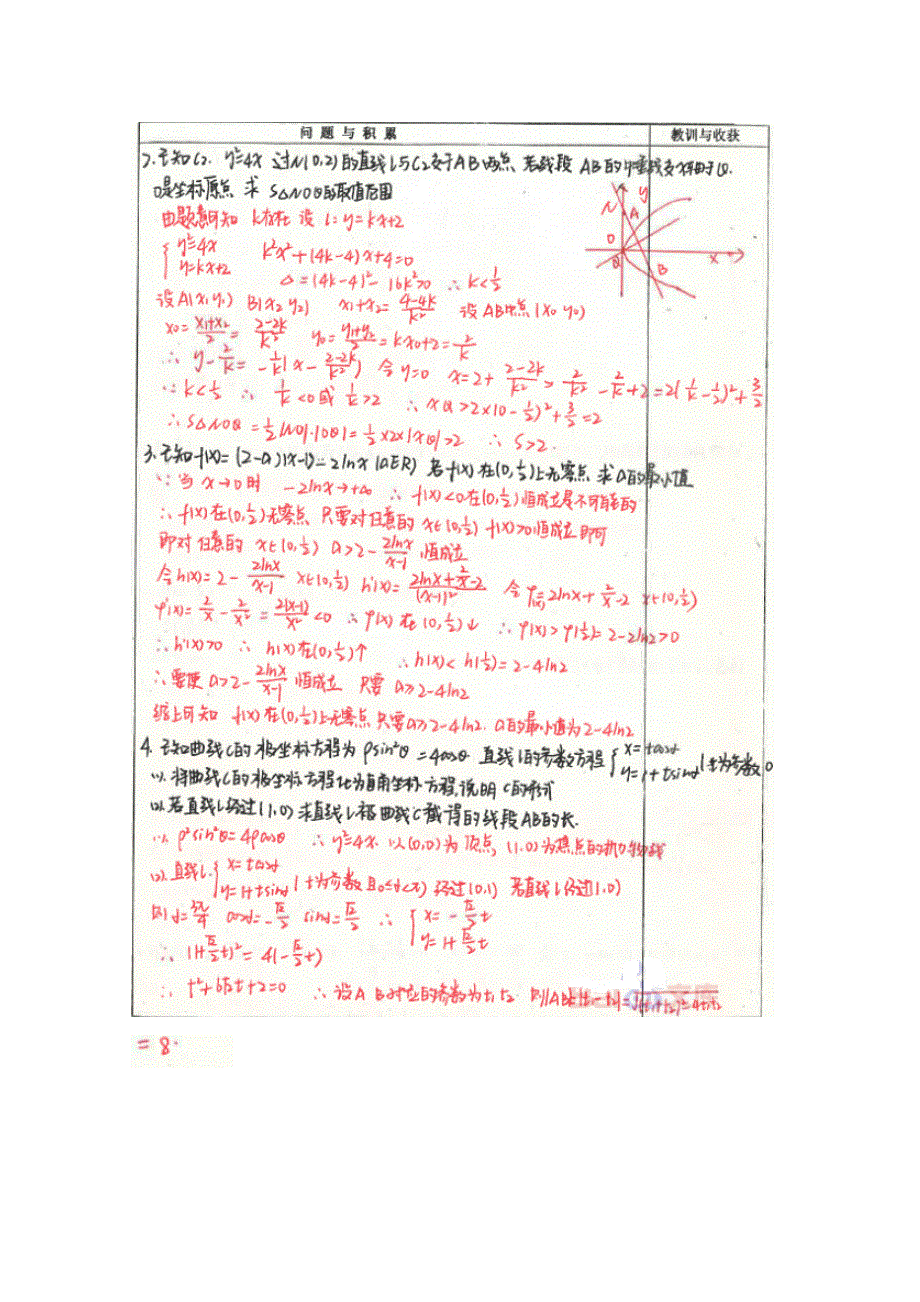 问题与积累 教训与收获
2.已知C₂. y²=4x 过N(0,2)的直线l与C₂交于AB两点,若线段AB的中垂线交x轴于Q.
O是坐标原点 求 S△NOQ的取值范围
由题意可知 k存在 设 l:y=kx+2
{y²=4x k²x²+(4k-4)x+4=0
y=kx+2 Δ=(4k-4)²-16k²>0 ∴k<1/2
设A(x₁y₁) B(x₂y₂) x₁+x₂=(4-4k)/k² 设AB中点(x₀y₀)
x₀=(x₁+x₂)/2=(2-2k)/k² y₀=(y₁+y₂)/2=kx₀+2=2/k
∴ y-2/k=-1/k(x-(2-2k)/k²) 令y=0 x=2+(2-2k)/k²=2/k²-2/k+2=2(1/k-1/2)²+3/2
∵k<1/2 ∴ 1/k<0或1/k>2 ∴xQ>2×(0-1/2)²+3/2=2
∴S△NOQ=1/2|NO|·|OQ|=1/2×2×|xQ|>2 ∴S>2.
3.已知f(x)=(2-a)(x-1)-2lnx(a∈R) 若f(x)在(0,1/2)上无零点,求a的最小值
∵当x→0时 -2lnx→+∞ ∴f(x)<0在(0,1/2)恒成立是不可能的
∴f(x)在(0,1/2)无零点 只要对任意的x∈(0,1/2) f(x)>0恒成立即可
即对任意的 x∈(0,1/2) a>2-2lnx/(x-1)恒成立
令h(x)=2-2lnx/(x-1) x∈(0,1/2) h'(x)=(2lnx+2/x-2)/(x-1)² 令φ(x)=2lnx+2/x-2 x∈(0,1/2)
φ'(x)=2/x-2/x²=2(x-1)/x²<0 ∴φ(x)在(0,1/2)↓ ∴φ(x)>φ(1/2)=2-2ln2>0
∴h'(x)>0 ∴h(x)在(0,1/2)↑ ∴h(x)<h(1/2)=2-4ln2
∴要使a>2-2lnx/(x-1)恒成立 只要a≥2-4ln2
综上可知 f(x)在(0,1/2)上无零点 只要a≥2-4ln2. a的最小值为2-4ln2
4.已知曲线C的极坐标方程为ρsin²θ=4cosθ 直线l的参数方程{x=tcosα
y=1+tsinα(t为参数,0
(1).将曲线C的极坐标方程化为直角坐标方程,说明C的形式
(2).若直线l经过(1.0)求直线l被曲线C截得的线段AB的长.
(1). ρ²sin²θ=4ρcosθ ∴y²=4x. 以(0,0)为顶点,(1.0)为焦点的抛物线
(2).直线l.{x=tcosα
y=1+tsinα(t为参数且0≤α<π)经过(0,1) 若直线l经过(1.0)
则α=3π/4 cosα=-√2/2 sinα=√2/2 ∴{x=-√2/2t
y=1+√2/2t
∴ (1+√2/2t)²=4(-√2/2t)
∴ t²+6√2t+2=0 ∴设A B对应的参数为t₁t₂ 则|AB|=|t₁-t₂|=√(t₁+t₂)²-4t₁t₂
=8.
N A y
O x
Q B